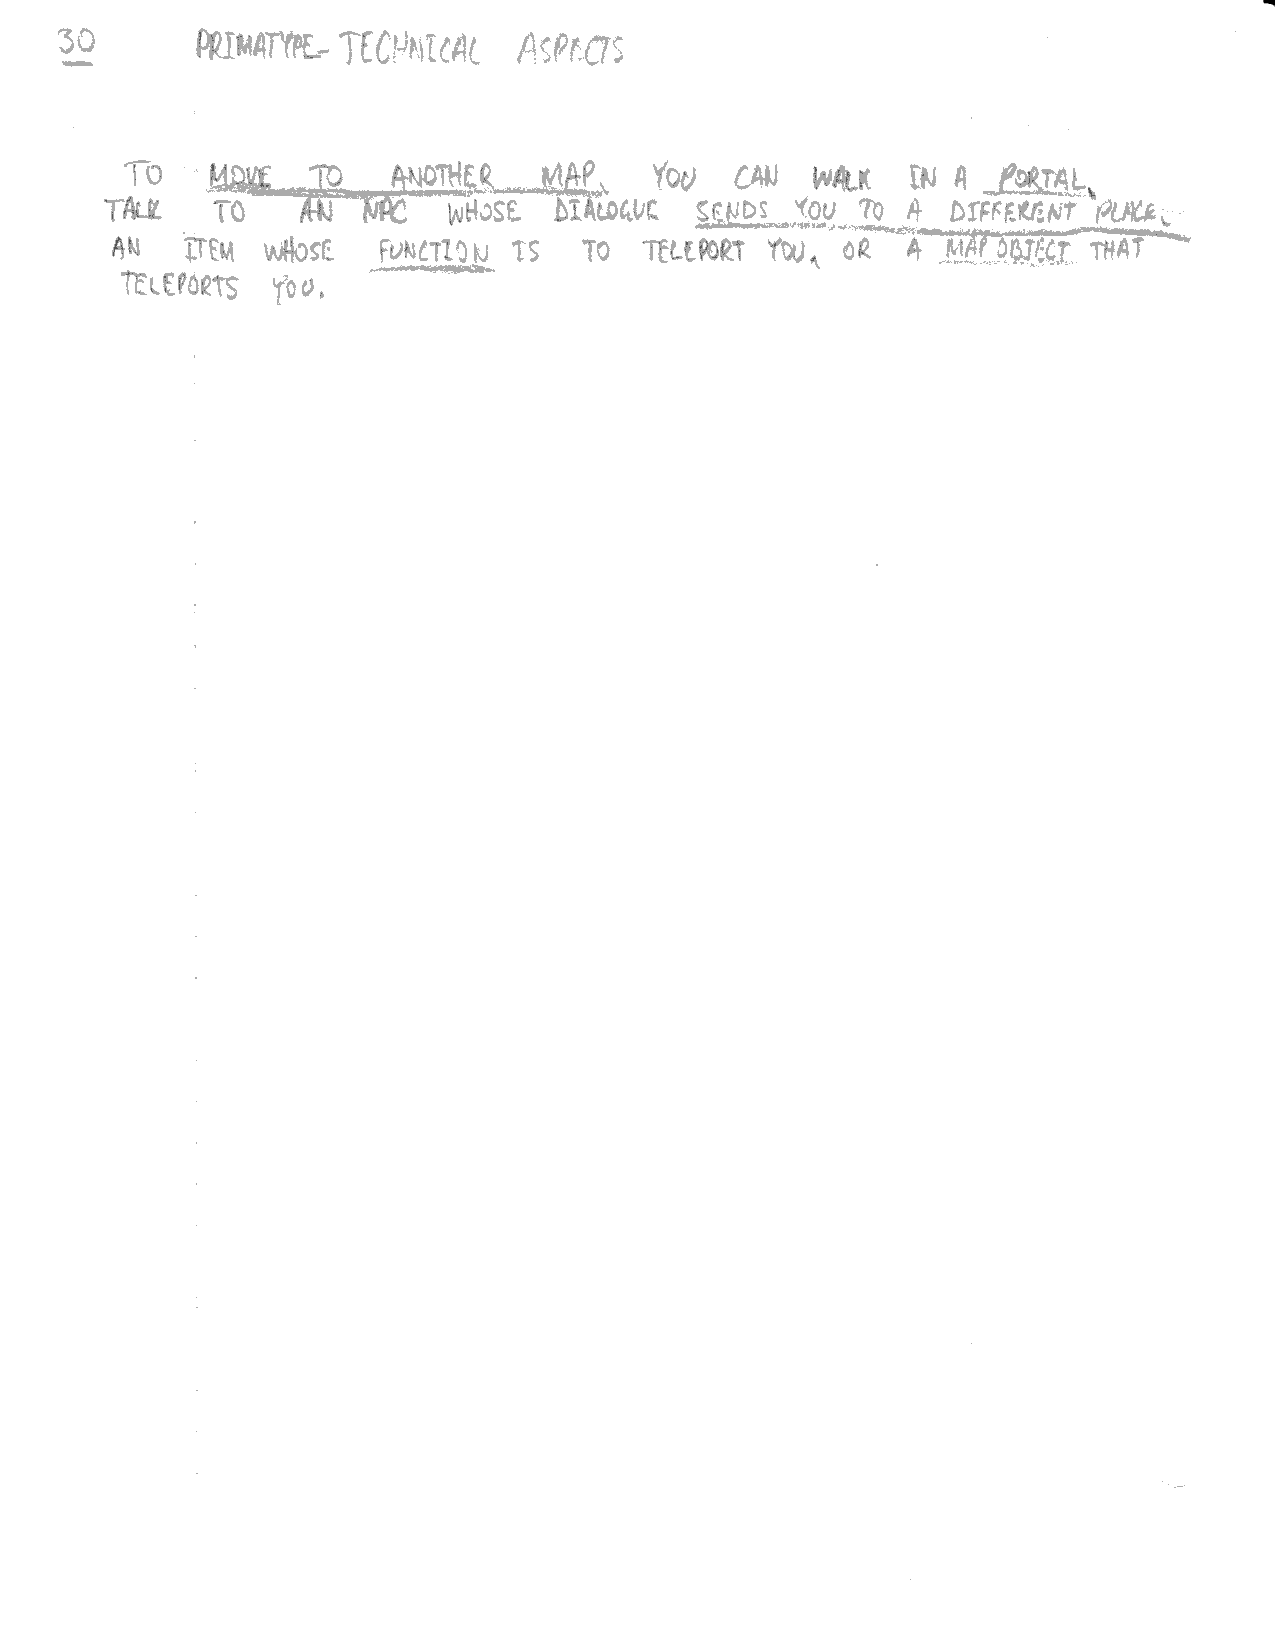 30 PRIMATYPE- TECHNICAL ASPECTS
TO MOVE TO ANOTHER MAP, YOU CAN WALK IN A PORTAL,
TALK TO AN NPC WHOSE DIALOGUE SENDS YOU TO A DIFFERENT PLACE,
AN ITEM WHOSE FUNCTION IS TO TELEPORT YOU, OR A MAP OBJECT THAT
TELEPORTS YOU.